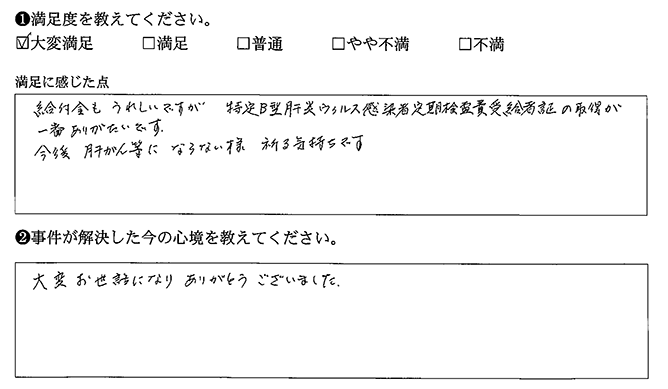 ❶満足度を教えてください。
☑大変満足 □満足 □普通 □やや不満 □不満
満足に感じた点
給付金も うれしいですが 特定B型肝炎ウィルス感染者定期検査費受給者証の取得が
一番ありがたいです。
今後 肝がん等に ならない様 祈る気持ちです
❷事件が解決した今の心境を教えてください。
大変お世話になり ありがとう ございました。